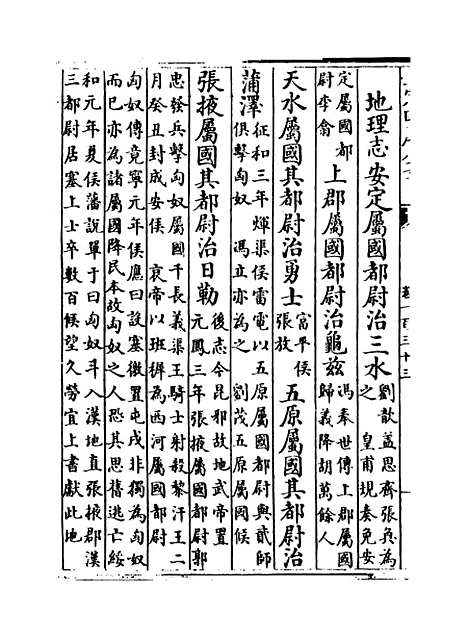 地理志安定屬國都尉治三水劉歆蓋思齊張奐為
之　皇甫規奏免安
定屬國都
尉李翕
上郡屬國都尉治龜茲馮奉世傳上郡屬國
歸義降胡萬餘人
天水屬國其都尉治勇士富平侯
張放
五原屬國其都尉治
蒲澤征和三年煇渠侯雷電以五原屬國都尉與貳師
俱擊匈奴　馮立亦為之　劉茂五原屬國候
張掖屬國其都尉治日勒後志今昆邪故地武帝置
元鳳三年張掖屬國都尉郭
忠發兵擊匈奴屬國千長義渠王騎士射殺黎汗王二
月癸丑封成安侯　哀帝以班穉為西河屬國都尉
匈奴傳竟寧元年侯應曰設塞徼置屯戍非獨為匈奴
而已亦為諸屬國降民本故匈奴之人恐其思舊逃亡綏
和元年夏侯藩說單于曰匈奴斗入漢地直張掖郡漢
三都尉居塞上士卒數百候望久勞宜上書獻此地